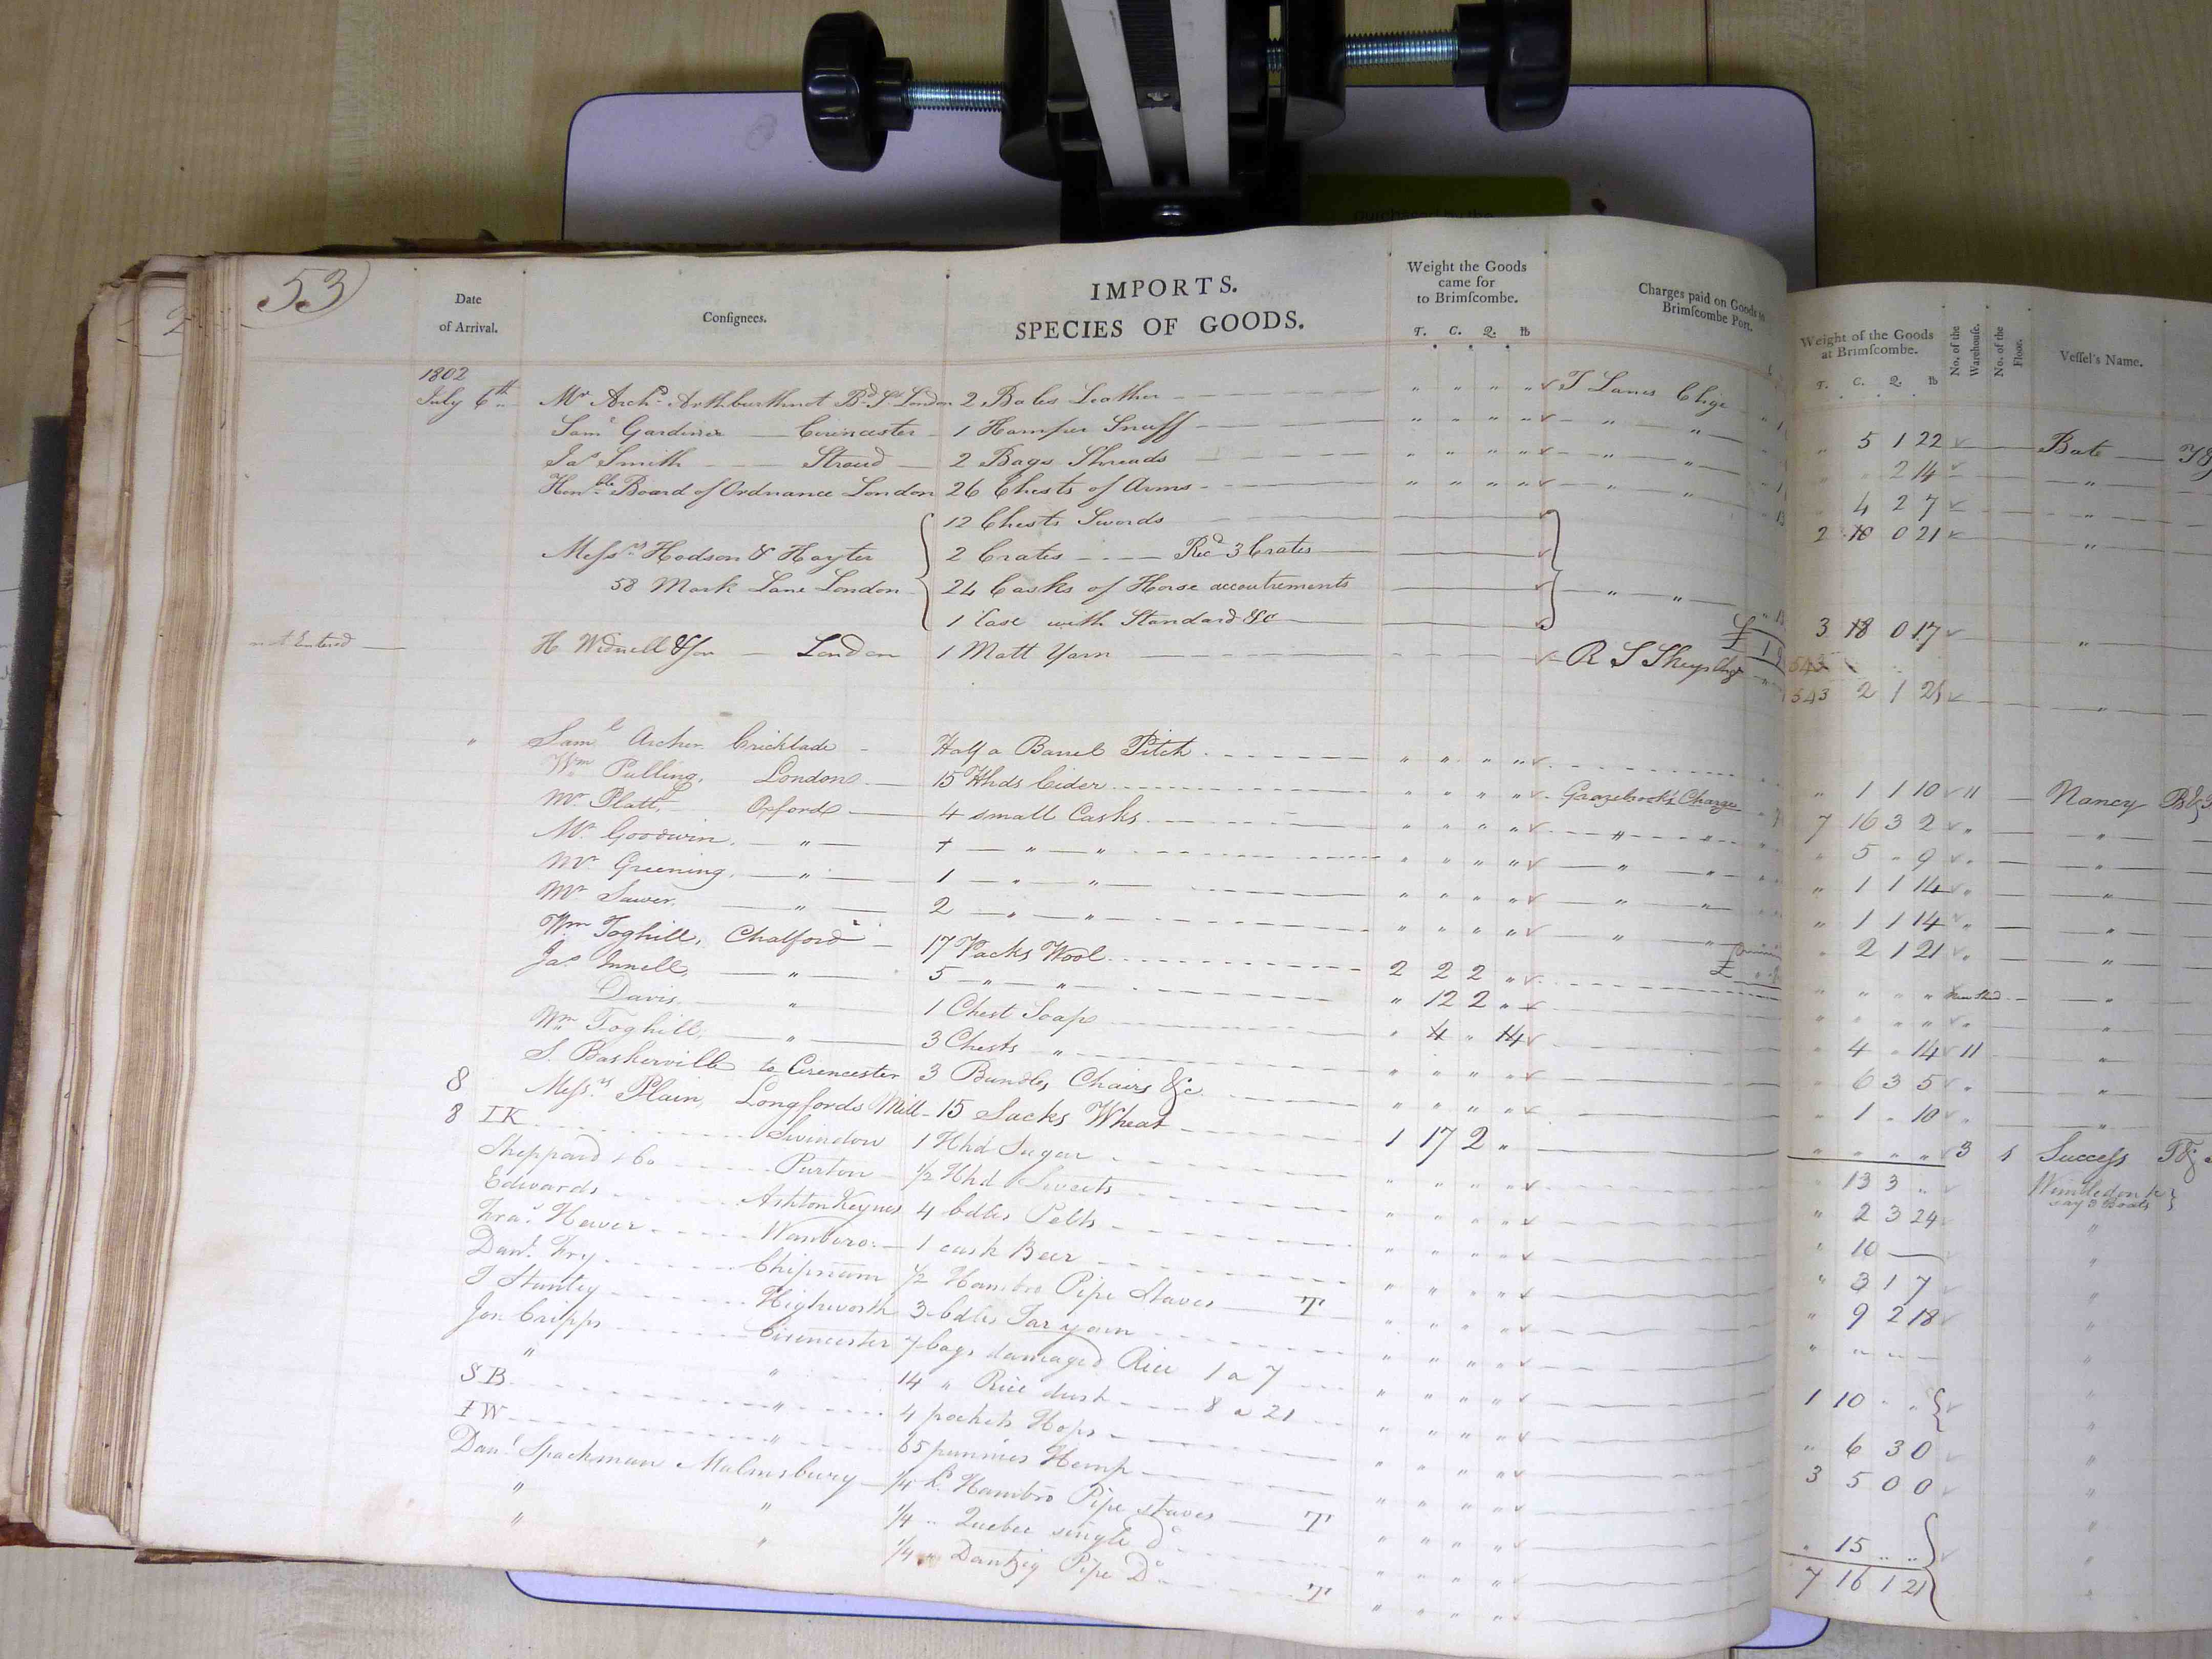 53
Date of Arrival.
Consignees.
IMPORTS.
SPECIES OF GOODS.
Weight the Goods came for to Brimſcombe.
T. C. Q. lb
Charges paid on Goods to Brimſcombe Port.
Weight of the Goods at Brimſcombe.
T. C. Q. lb
No. of the Warehouſe.
No. of the Floor.
Veſſel's Name.
1802
July 6th Mr Archd Arthburthnot Bd St London 2 Bales Leather " " " " T Lanes Chge 5 1 22 Bate
Saml Gardiner Cirencester 1 Hamper Snuff " " " " " " 2 14 "
Jas Smith Stroud 2 Bags Threads " " " " " " 4 2 7 "
Honble Board of Ordnance London 26 Chests of Arms " " " " " " 2 10 0 21 "
12 Chests Swords
Messrs Hodson & Hayter 2 Crates Recd 3 Crates
58 Mark Lane London 24 Casks of Horse accoutrements " "
1 Case with Standard &c 3 18 0 17 "
not Entered H Widnell & Son London 1 Matt Yarn R S Skeys Chge 543 2 1 21 "
" Saml Archer Cricklade Half a Barrel Pitch " " " " " 1 1 10 11 Nancy
Wm Pulling, London 15 Hhds Cider " " " " Grazebrook's Charge 7 16 3 2 " "
Mr Platt, Oxford 4 small Casks " " " " " " 5 " 9 " "
Mr Goodwin, " + " " " " " " " " 1 1 14 " "
Mr Greening, " 1 " " " " " " " " 1 1 14 " "
Mr Sawer. " 2 " " " " " " " " 2 1 21 " "
Wm Toghill, Chalford 17 Packs Wool 2 2 2 " " " " " "
Jas Innell, " 5 " " " 12 2 " " " " " "
Davis " 1 Chest Soap " 4 " 14 4 " 14 11 "
Wm Toghill, " 3 Chests " " " " " 6 3 5 " "
S. Baskerville to Cirencester 3 Bundles Chairs &c " " " " 1 " 10 " "
8 Messrs Plain, Longfords Mill 15 Sacks Wheat 1 17 2 " " " " " 3 1 Success
8 IK Swindon 1 Hhd Sugar " " " " 13 3 " Wimbledon
Sheppard & Co Purton 1/2 Hhd Sweets " " " " " 2 3 24 "
Edwards Ashton Keynes 4 bdles Pelts " " " " " 10 "
Fras Hewer Wanboro. 1 cask Beer " " " " " 3 1 7 "
Danl Fry Chipnum 1/2 Hambro Pipe Staves T " " " " " 9 2 18 "
J Stanley Highworth 3 bdles Tar yarn " " " " " " " "
Jon Cripps Cirencester 7 bags damaged Rice 1 a 7 " " " " 1 10 " " "
" " 14 " Rice dust 8 a 21 " " " "
SB " 4 pockets Hops " " " " " 6 3 0 "
IW " 65 pummies Hemp " " " " 3 5 0 0 "
Danl Spackman Malmsbury 1/4 hd Hambro Pipe staves T " " " "
" " 1/4 " Quebec single do " " " " " 15 " "
" " 1/4 " Dantzig Pipe Do T " " " "
7 16 1 21